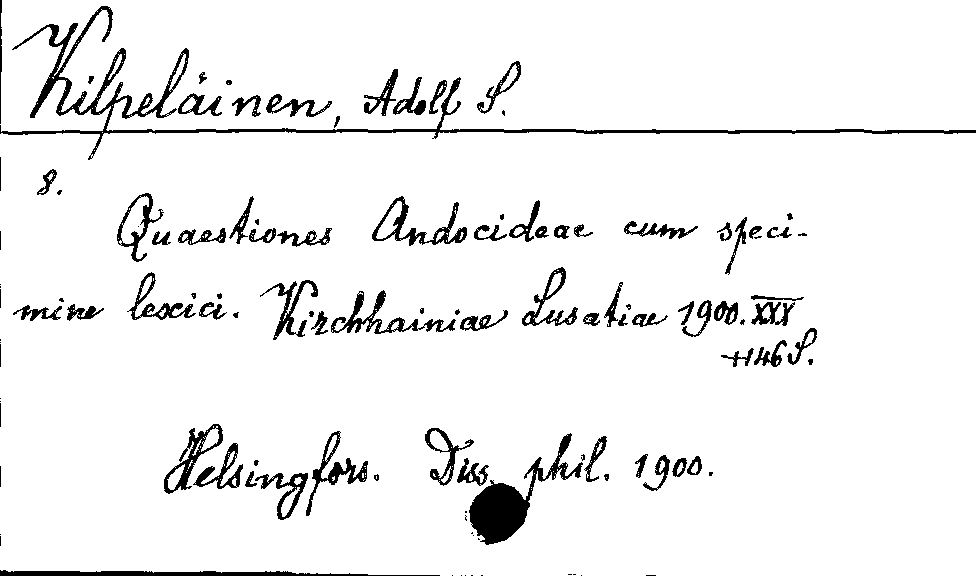 Kilpeläinen, Adolf S.
8.
Quaestiones Andocideae cum speci-
mine lexici. Kirchhainiae Lusatiae 1900. XXX
+146 S.
Helsingfors. Diss. phil. 1900.